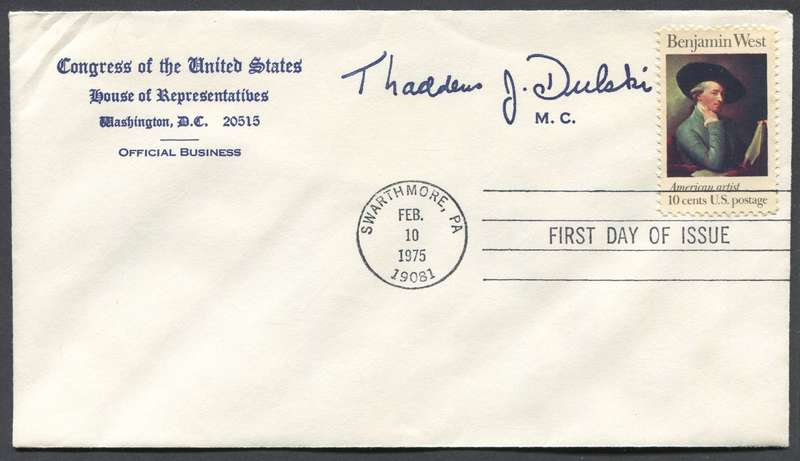 Congress of the United States
House of Representatives
Washington, D.C. 20515
OFFICIAL BUSINESS
Thaddeus J. Dulski
M. C.
Benjamin West
American artist
10 cents U.S. postage
SWARTHMORE, PA
FEB.
10
1975
19081
FIRST DAY OF ISSUE